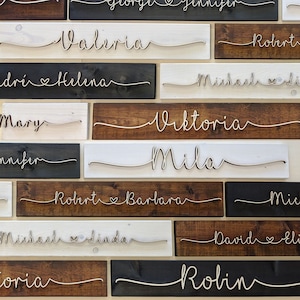 George ♡ Jennifer
Valeria
Robert
André ♡ Helena
Michael ♡
Mary
Viktoria
Jennifer
Mila
Robert ♡ Barbara
Mic
Michael ♡ Linda
David ♡ Eli
toria
Robin